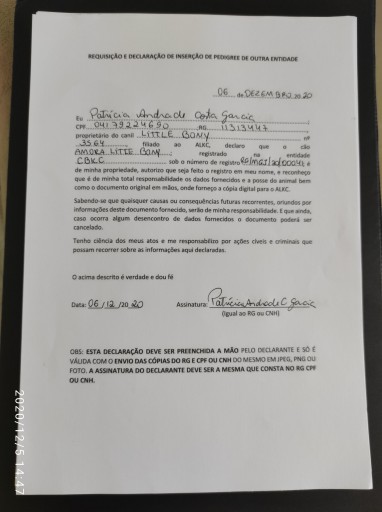 REQUISIÇÃO E DECLARAÇÃO DE INSERÇÃO DE PEDIGREE DE OUTRA ENTIDADE
06 de DEZEMBRO 20 20
Eu Patrícia Andrade Costa Garcia
CPF 04179224690 RG 11313447
proprietário do canil LITTLE BONY nº
3564 filiado ao ALKC, declaro que o cão
AMORA LITTE BONY, registrado na entidade
CBKC sob o número de registro RG/MGT/20/00042 e
de minha propriedade, autorizo que seja feito o registro em meu nome, e reconheço
que é de minha total responsabilidade os dados fornecidos e a posse do animal bem
como o documento original em mãos, onde forneço a cópia digital para o ALKC.
Sabendo-se que quaisquer causas ou consequências futuras recorrentes, oriundos por
informações deste documento fornecido, serão de minha responsabilidade. E que ainda,
caso ocorra algum desencontro de dados fornecidos o documento poderá ser
cancelado.
Tenho ciência dos meus atos e me responsabilizo por ações cíveis e criminais que
possam recorrer sobre as informações aqui declaradas.
O acima descrito é verdade e dou fé
Data: 06/12/2020 Assinatura: Patrícia Andrade C Garcia
(Igual ao RG ou CNH)
OBS: ESTA DECLARAÇÃO DEVE SER PREENCHIDA A MÃO PELO DECLARANTE E SÓ É
VÁLIDA COM O ENVIO DAS CÓPIAS DO RG E CPF OU CNH DO MESMO EM JPEG, PNG OU
FOTO. A ASSINATURA DO DECLARANTE DEVE SER A MESMA QUE CONSTA NO RG CPF
OU CNH.
2020/12/5 14:47